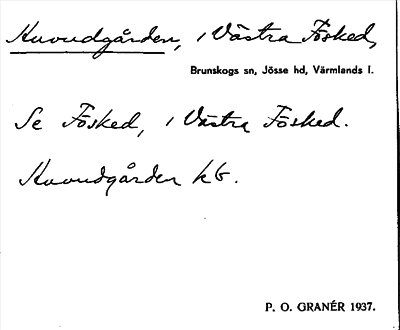 Huvudgården, i Västra Fösked,
Brunskogs sn, Jösse hd, Värmlands l.
Se Fösked, i Västra Fösked.
Huvudgården kG.
P. O. GRANÉR 1937.